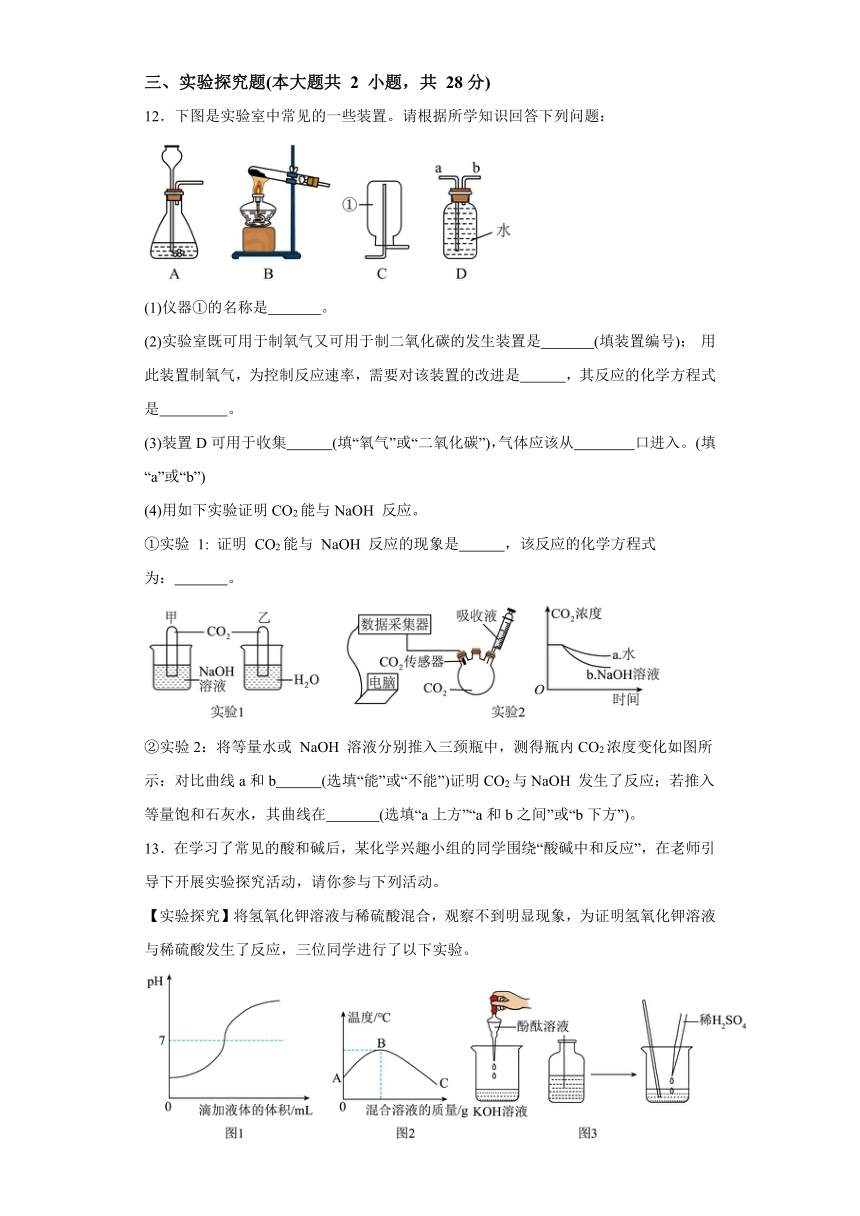 三、实验探究题(本大题共 2 小题，共 28分)
12．下图是实验室中常见的一些装置。请根据所学知识回答下列问题：
a b
①
水
A B C D
(1)仪器①的名称是_______。
(2)实验室既可用于制氧气又可用于制二氧化碳的发生装置是_______(填装置编号)； 用
此装置制氧气，为控制反应速率，需要对该装置的改进是______，其反应的化学方程式
是_________。
(3)装置 D 可用于收集______(填“氧气”或“二氧化碳”)，气体应该从________口进入。(填
“a”或“b”)
(4)用如下实验证明CO₂能与NaOH 反应。
①实验 1: 证明 CO₂能与 NaOH 反应的现象是______，该反应的化学方程式
为：_______。
甲 乙
CO₂
NaOH
溶液
H₂O
实验1
数据采集器
吸收液
CO₂传感器
电脑
CO₂
实验2
CO₂浓度
a.水
b.NaOH溶液
O
时间
②实验2：将等量水或 NaOH 溶液分别推入三颈瓶中，测得瓶内CO₂浓度变化如图所
示：对比曲线a和b______(选填“能”或“不能”)证明CO₂与NaOH 发生了反应；若推入
等量饱和石灰水，其曲线在_______(选填“a上方”“a和b之间”或“b下方”)。
13．在学习了常见的酸和碱后，某化学兴趣小组的同学围绕“酸碱中和反应”，在老师引
导下开展实验探究活动，请你参与下列活动。
【实验探究】将氢氧化钾溶液与稀硫酸混合，观察不到明显现象，为证明氢氧化钾溶液
与稀硫酸发生了反应，三位同学进行了以下实验。
pH
7
0
滴加液体的体积/mL
图1
温度/℃
B
A
C
0
混合溶液的质量/g
图2
酚酞溶液
KOH溶液
稀H₂SO₄
图3